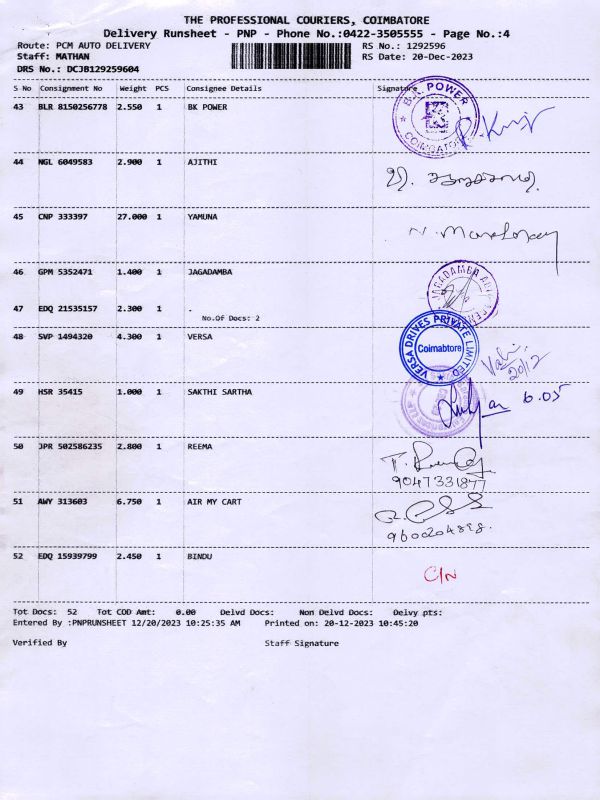 THE PROFESSIONAL COURIERS, COIMBATORE
Delivery Runsheet - PNP - Phone No.:0422-3505555 - Page No.:4
Route: PCM AUTO DELIVERY RS No.: 1292596
Staff: MATHAN RS Date: 20-Dec-2023
DRS No.: DCJB129259604
S No Consignment No Weight PCS Consignee Details Signature
43 BLR 8150256778 2.550 1 BK POWER
B.K. POWER
COIMBATORE
44 NGL 6049583 2.900 1 AJITHI
45 CNP 333397 27.000 1 YAMUNA
46 GPM 5352471 1.400 1 JAGADAMBA
JAGADAMBA
47 EDQ 21535157 2.300 1 .
No.Of Docs: 2
48 SVP 1494320 4.300 1 VERSA
VERSA DRIVES PRIVATE LIMITED
Coimabtore
20/12
49 HSR 35415 1.000 1 SAKTHI SARTHA
6.05
50 JPR 502586235 2.800 1 REEMA
9047331877
51 AWY 313603 6.750 1 AIR MY CART
52 EDQ 15939799 2.450 1 BINDU
C/N
Tot Docs: 52 Tot COD Amt: 0.00 Delvd Docs: Non Delvd Docs: Delvy pts:
Entered By :PNPRUNSHEET 12/20/2023 10:25:35 AM Printed on: 20-12-2023 10:45:20
Verified By Staff Signature